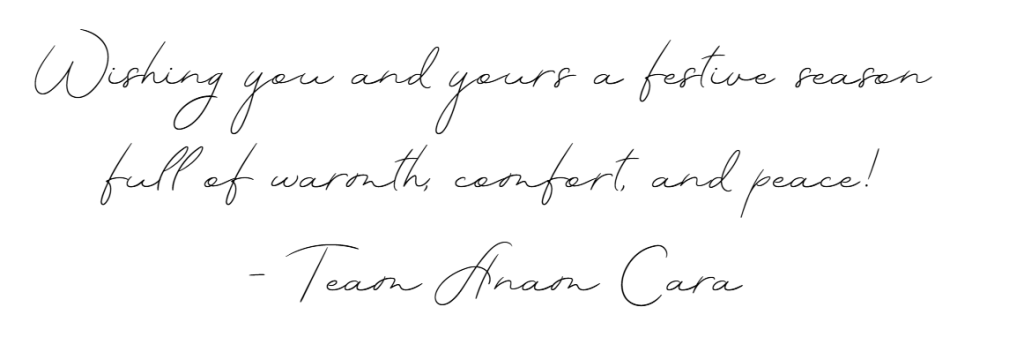 Wishing you and yours a festive season
full of warmth, comfort, and peace!
- Team Anam Cara